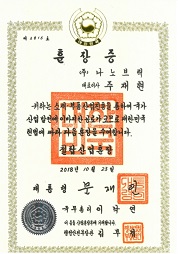 훈장증
(주) 나노브릭
대표이사 주재현
귀하는 소재·부품산업진흥을 통하여 국가
산업발전에 이바지한 공로가 크므로 대한민국
헌법에 따라 다음 훈장을 수여합니다
철탑산업훈장
2018년 10월 25일
대통령 문재인
국무총리 이낙연
행정안전부장관 김부겸